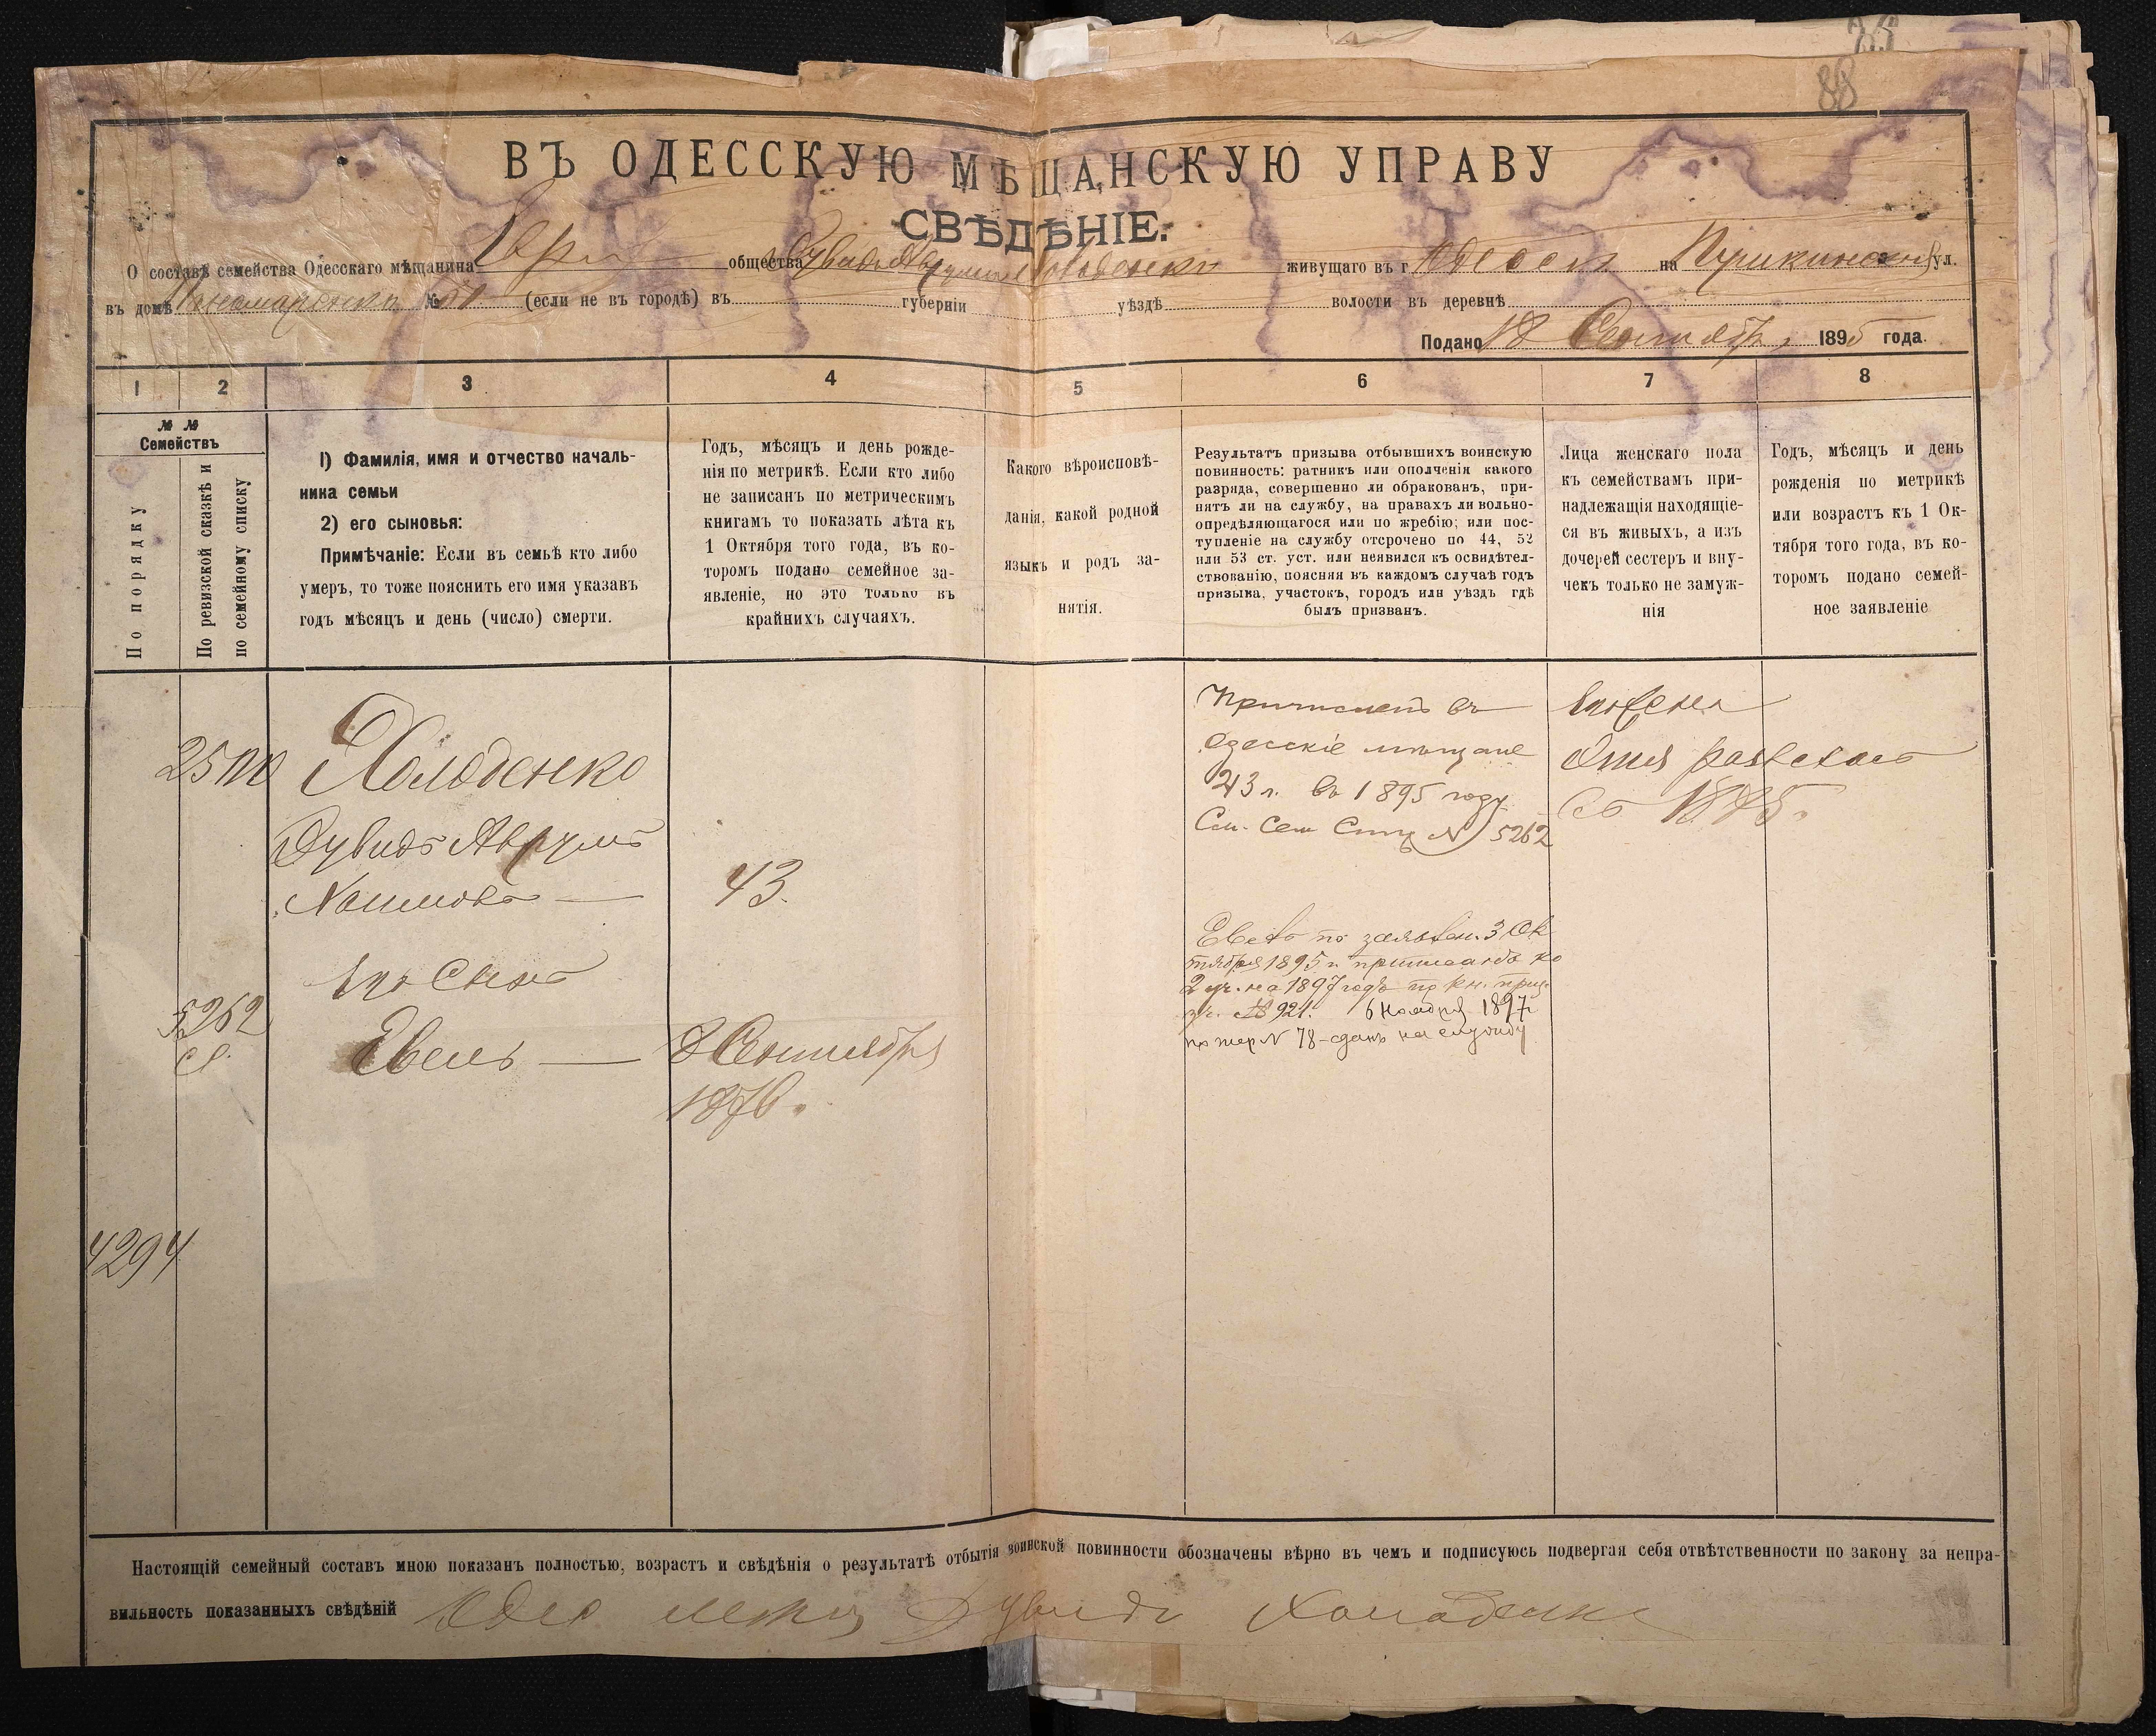 88
ВЪ ОДЕССКУЮ МѢЩАНСКУЮ УПРАВУ
СВѢДѢНІЕ.
О составѣ семейства Одесскаго мѣщанина Евр общества Дувидъ Аврумъ Холоденко живущаго въ г Одессѣ на Пушкинской ул.
въ домѣ Пономаренко № 51 (если не въ городѣ) въ губерніи уѣздѣ волости въ деревнѣ
Подано 18 Сентября 1895 года.
1 2 3 4 5 6 7 8
№ №
Семействъ
По порядку
По ревизской сказкѣ и
по семейному списку
1) Фамилія, имя и отчество началь-
ника семьи
2) его сыновья:
Примѣчаніе: Если въ семьѣ кто либо
умеръ, то тоже пояснить его имя указавъ
годъ мѣсяцъ и день (число) смерти.
Годъ, мѣсяцъ и день рожде-
нія по метрикѣ. Если кто либо
не записанъ по метрическимъ
книгамъ то показать лѣта къ
1 Октября того года, въ ко-
торомъ подано семейное за-
явленіе, но это только въ
крайнихъ случаяхъ.
Какого вѣроисповѣ-
данія, какой родной
языкъ и родъ за-
нятія.
Результатъ призыва отбывшихъ воинскую
повинность: ратникъ или ополченія какого
разряда, совершенно ли обракованъ, при-
нятъ ли на службу, на правахъ ли вольно-
опредѣляющагося или по жребію; или пос-
тупленіе на службу отсрочено по 44, 52
или 53 ст. уст. или неявился къ освидѣтел-
ствованію, поясняя въ каждомъ случаѣ годъ
призыва, участокъ, городъ или уѣздъ гдѣ
былъ призванъ.
Лица женскаго пола
къ семействамъ при-
надлежащія находящіе-
ся въ живыхъ, а изъ
дочерей сестеръ и вну-
чекъ только не замуж-
нія
Годъ, мѣсяцъ и день
рожденія по метрикѣ
или возрастъ къ 1 Ок-
тября того года, въ ко-
торомъ подано семей-
ное заявленіе
2500 Холоденко
Дувидъ Аврумъ
Хаимовъ — 43.
его Сынъ
5262
Евель — 8 Сентября
1876.
4294
Причисленъ въ
Одесскіе мѣщане
43 л. въ 1895 году
См. Сем Спис N 5262
Евель по заявлен. 3 Ок
тября 1895 г. приписанъ ко
2 уч. на 1897 годъ по кн. приз.
уч. № 921. 6 Ноября 1897
по жер N 78 - сданъ на службу
его Жена
съ 1875.
Настоящій семейный составъ мною показанъ полностью, возрастъ и свѣдѣнія о результатѣ отбытія воинской повинности обозначены вѣрно въ чемъ и подписуюсь подвергая себя отвѣтственности по закону за непра-
вильность показанныхъ свѣдѣній Одес мещ Дувидъ Холоденко